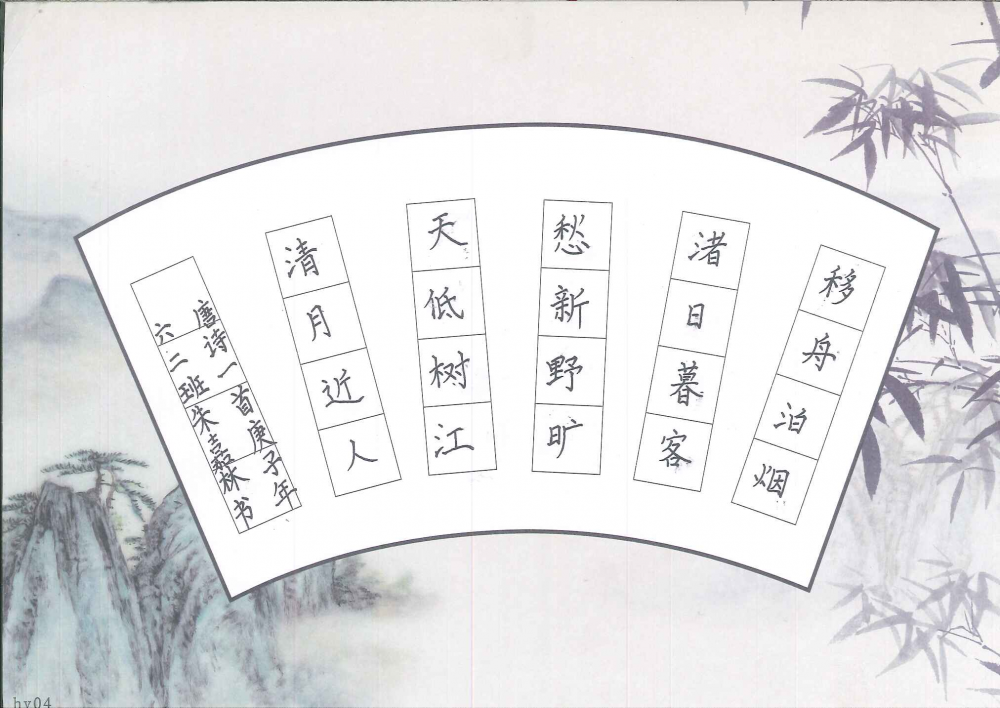 移舟泊烟
渚日暮客
愁新野旷
天低树江
清月近人
唐诗一首庚子年
六二班朱嘉林书
hy04